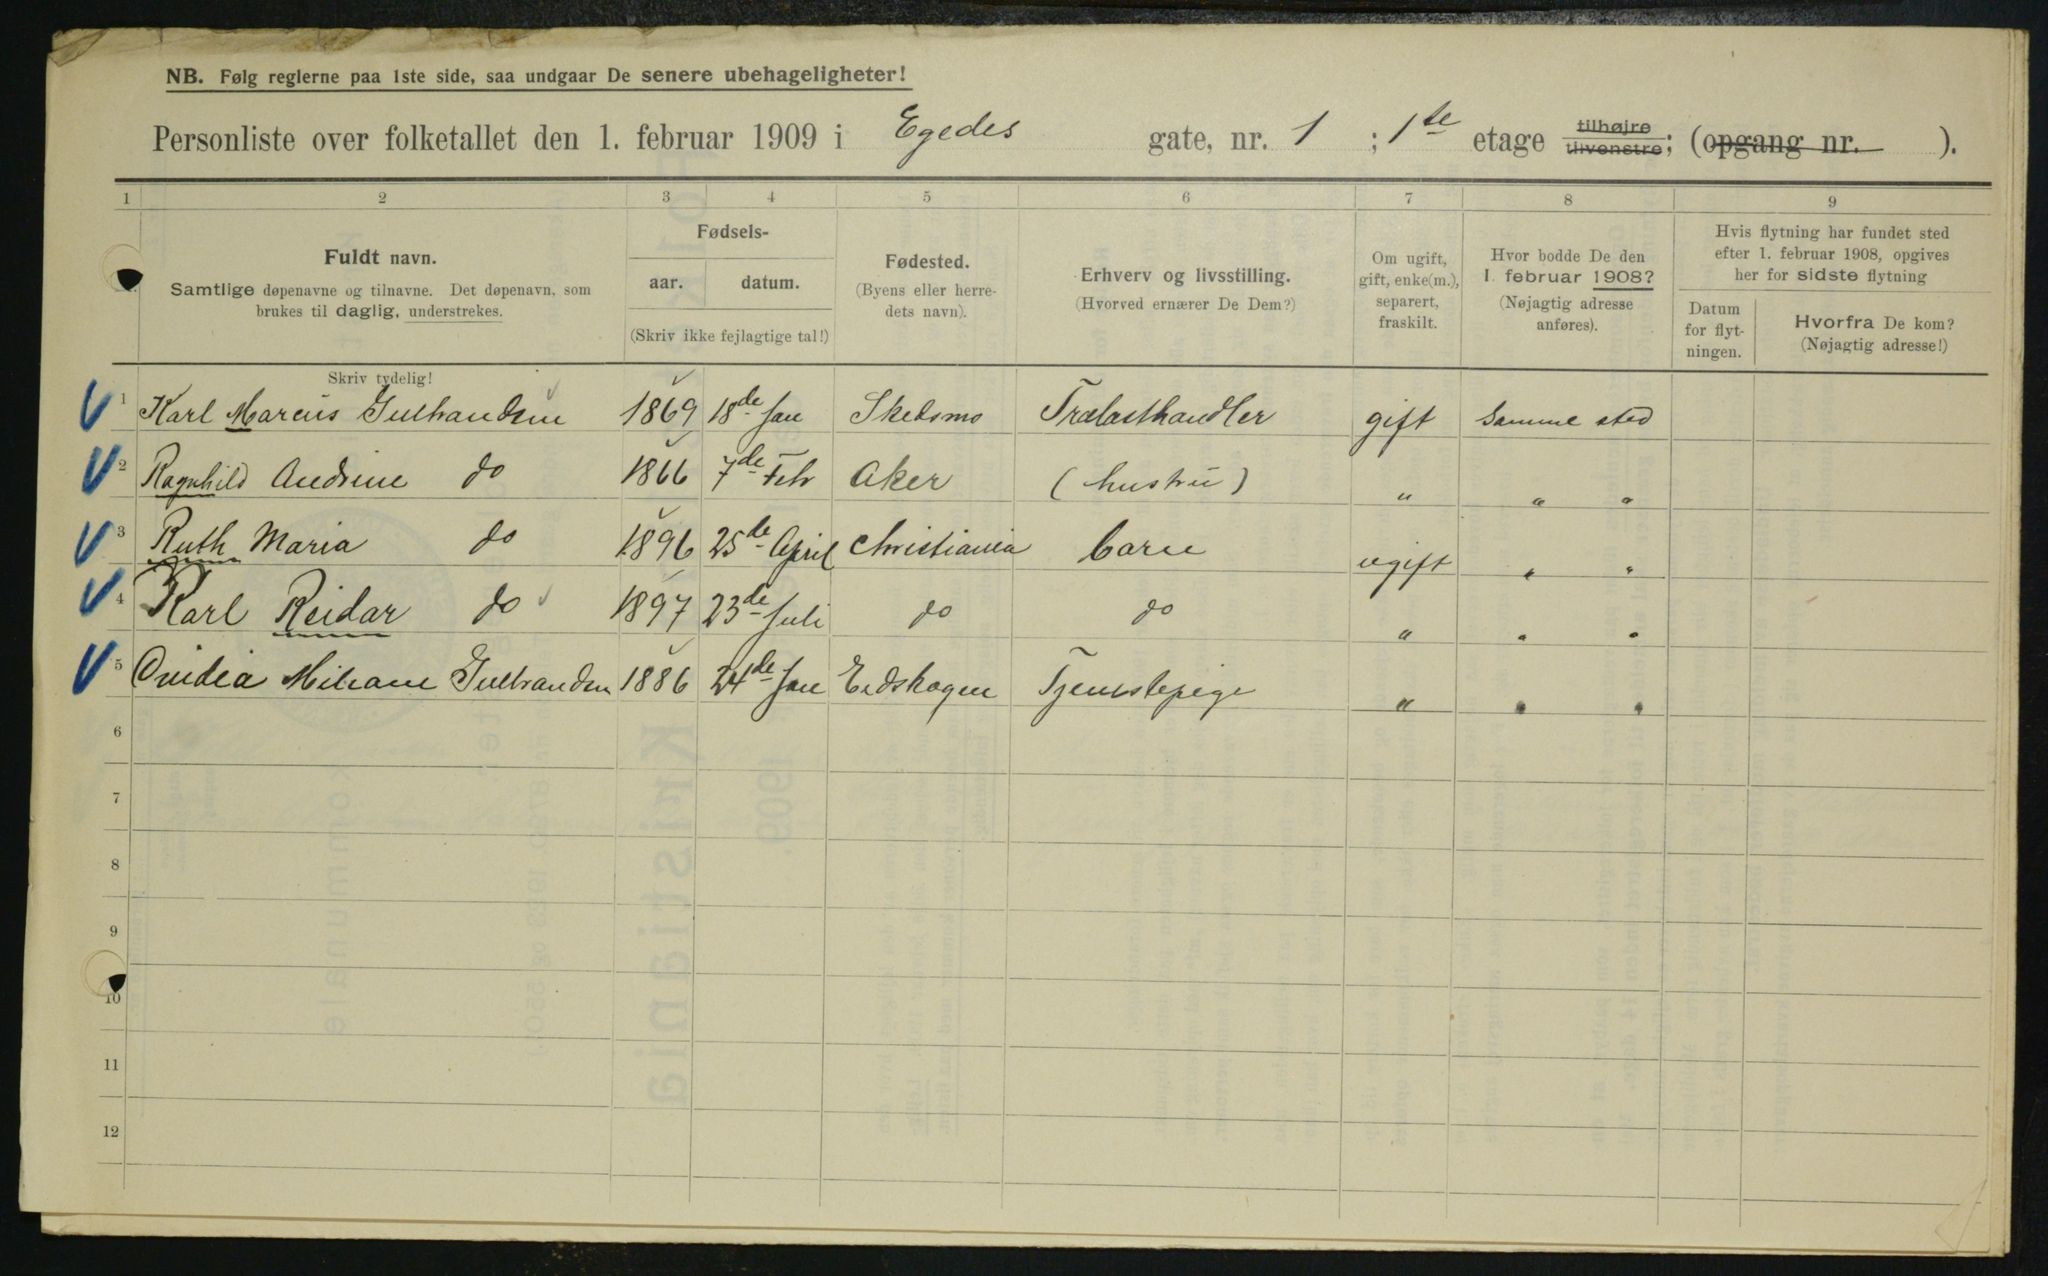 NB. Følg reglerne paa 1ste side, saa undgaar De senere ubehageligheter!
Personliste over folketallet den 1. februar 1909 i Egedes gate, nr. 1 ; 1ste etage tilhøjre tilvenstre; (opgang nr. ).
1 2 3 4 5 6 7 8 9
Fuldt navn.
Samtlige døpenavne og tilnavne. Det døpenavn, som
brukes til daglig, understrekes.
Skriv tydelig!
Fødsels-
aar. datum.
(Skriv ikke fejlagtige tal!)
Fødested.
(Byens eller herre-
dets navn).
Erhverv og livsstilling.
(Hvorved ernærer De Dem?)
Om ugift,
gift, enke(m.),
separert,
fraskilt.
Hvor bodde De den
1. februar 1908?
(Nøjagtig adresse
anføres).
Hvis flytning har fundet sted
efter 1. februar 1908, opgives
her for sidste flytning
Datum
for flyt-
ningen.
Hvorfra De kom?
(Nøjagtig adresse!)
1 Karl Marcus Gulbrandsen 1869 18de Jan Skedsmo Trælasthandler gift Samme sted
2 Ragnhild Andrine do 1866 7de Febr Aker (hustru) " " "
3 Ruth Maria do 1896 25de April Christiania barn ugift " "
4 Karl Reidar do 1897 23de Juli do do " " "
5 Ovidea Gulbrandsen 1886 24de Jan Eidskogen Tjenestepige " " "
6
7
8
9
10
11
12